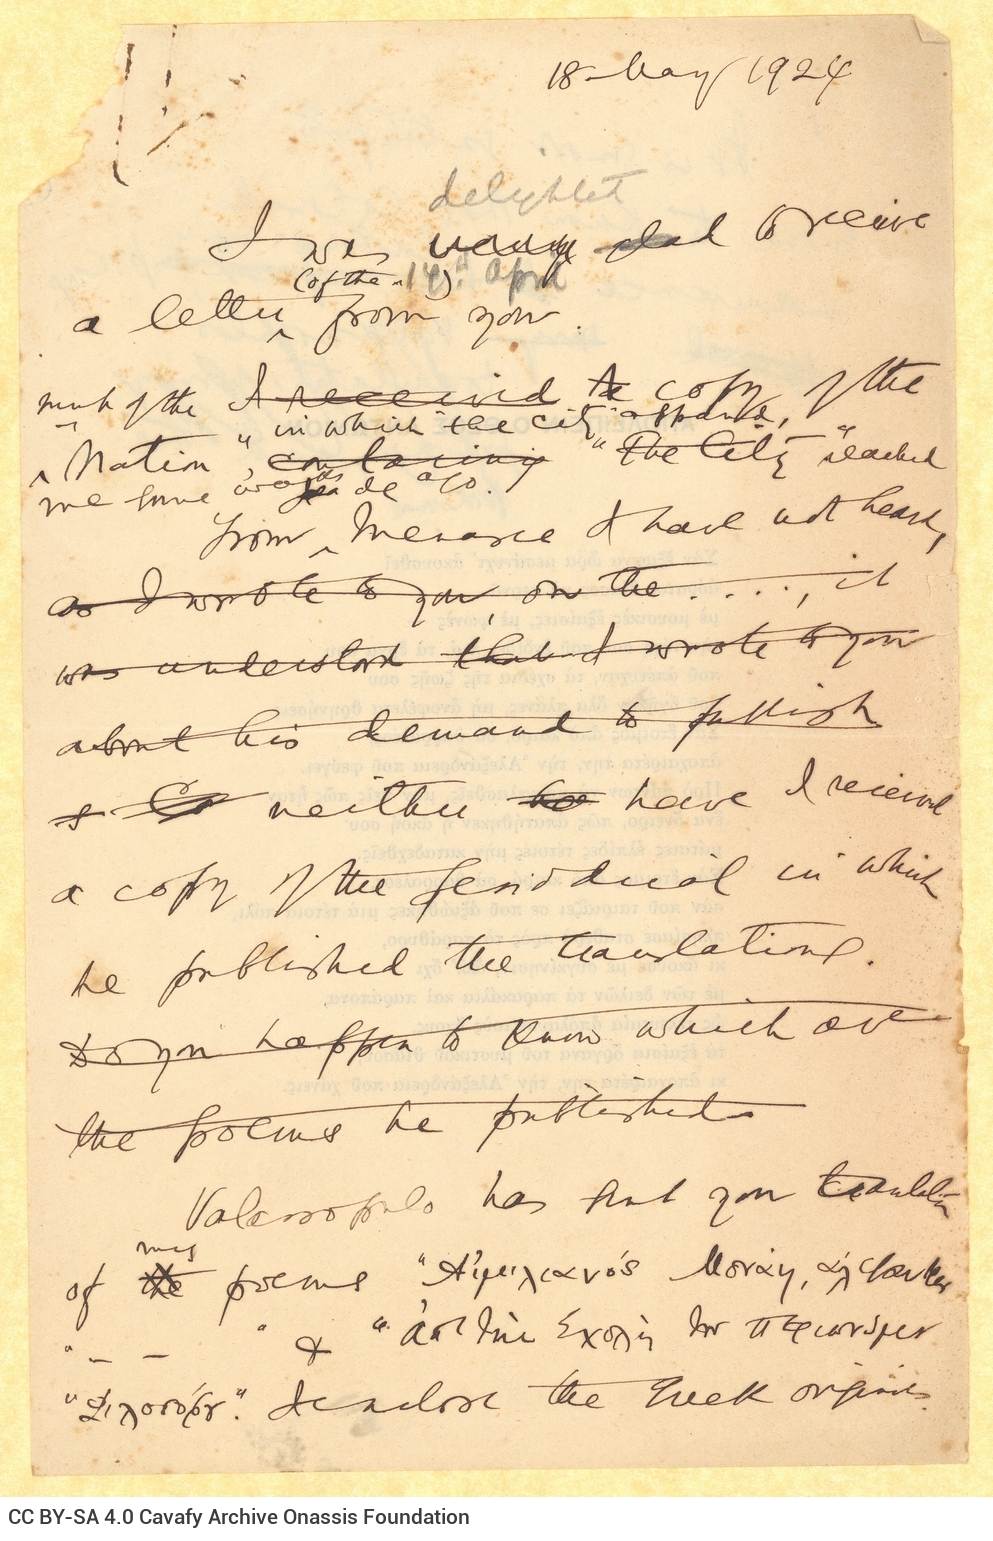 18 May 1924
delighted
I was very glad to receive
(of the 14th April)
a letter from you.
I received the copy, of the
in which "the city" appears,
Nation", containing "The City" reached
me some weeks ago.
From Menasce I have not heard,
as I wrote to you, on the . . . . , it
was understood that I wrote to you
about his demand to publish
neither have I received
a copy of the periodical in which
he published the translations.
Do you happen to know which are
the poems he published
Valassopulo has sent you translation
my
of the poems "Αἰμιλιανός Μονάη, ἀλεξανδρεύς
" & "ἀπ' τὴν Σχολὴ τοῦ περιωνύμου
Φιλοσόφου". I enclose the Greek originals.
CC BY-SA 4.0 Cavafy Archive Onassis Foundation